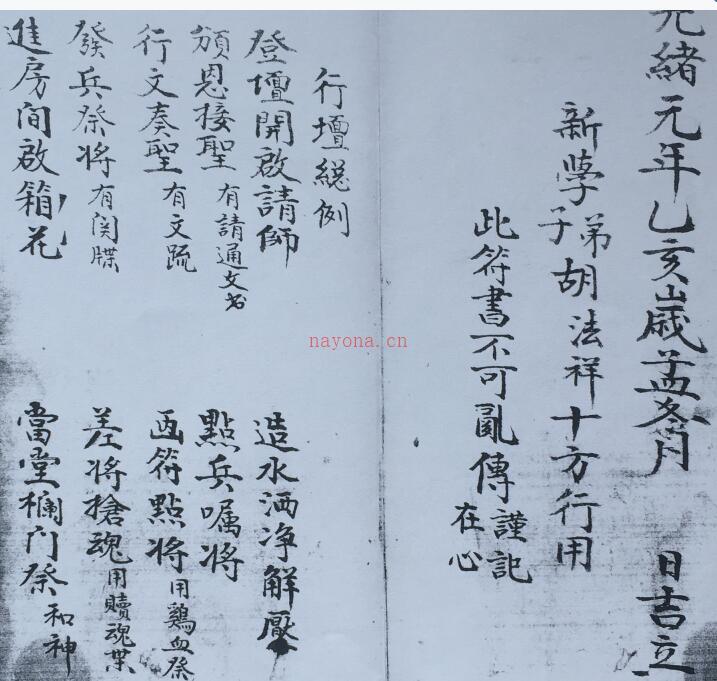 光緒元年乙亥歲孟冬月 日吉立
新學弟子胡法祥十方行用
此符書不可亂傳謹記在心
行壇總例
登壇開啟請師 造水洒净解厭
頒恩接聖有請通文书 點兵嘱将
行文奏聖有文疏 画符點将用鷄血祭
發兵祭将有関牒 差将搶魂用贖魂業
進房間啟箱花 當堂欄门祭和神
nayona.cn